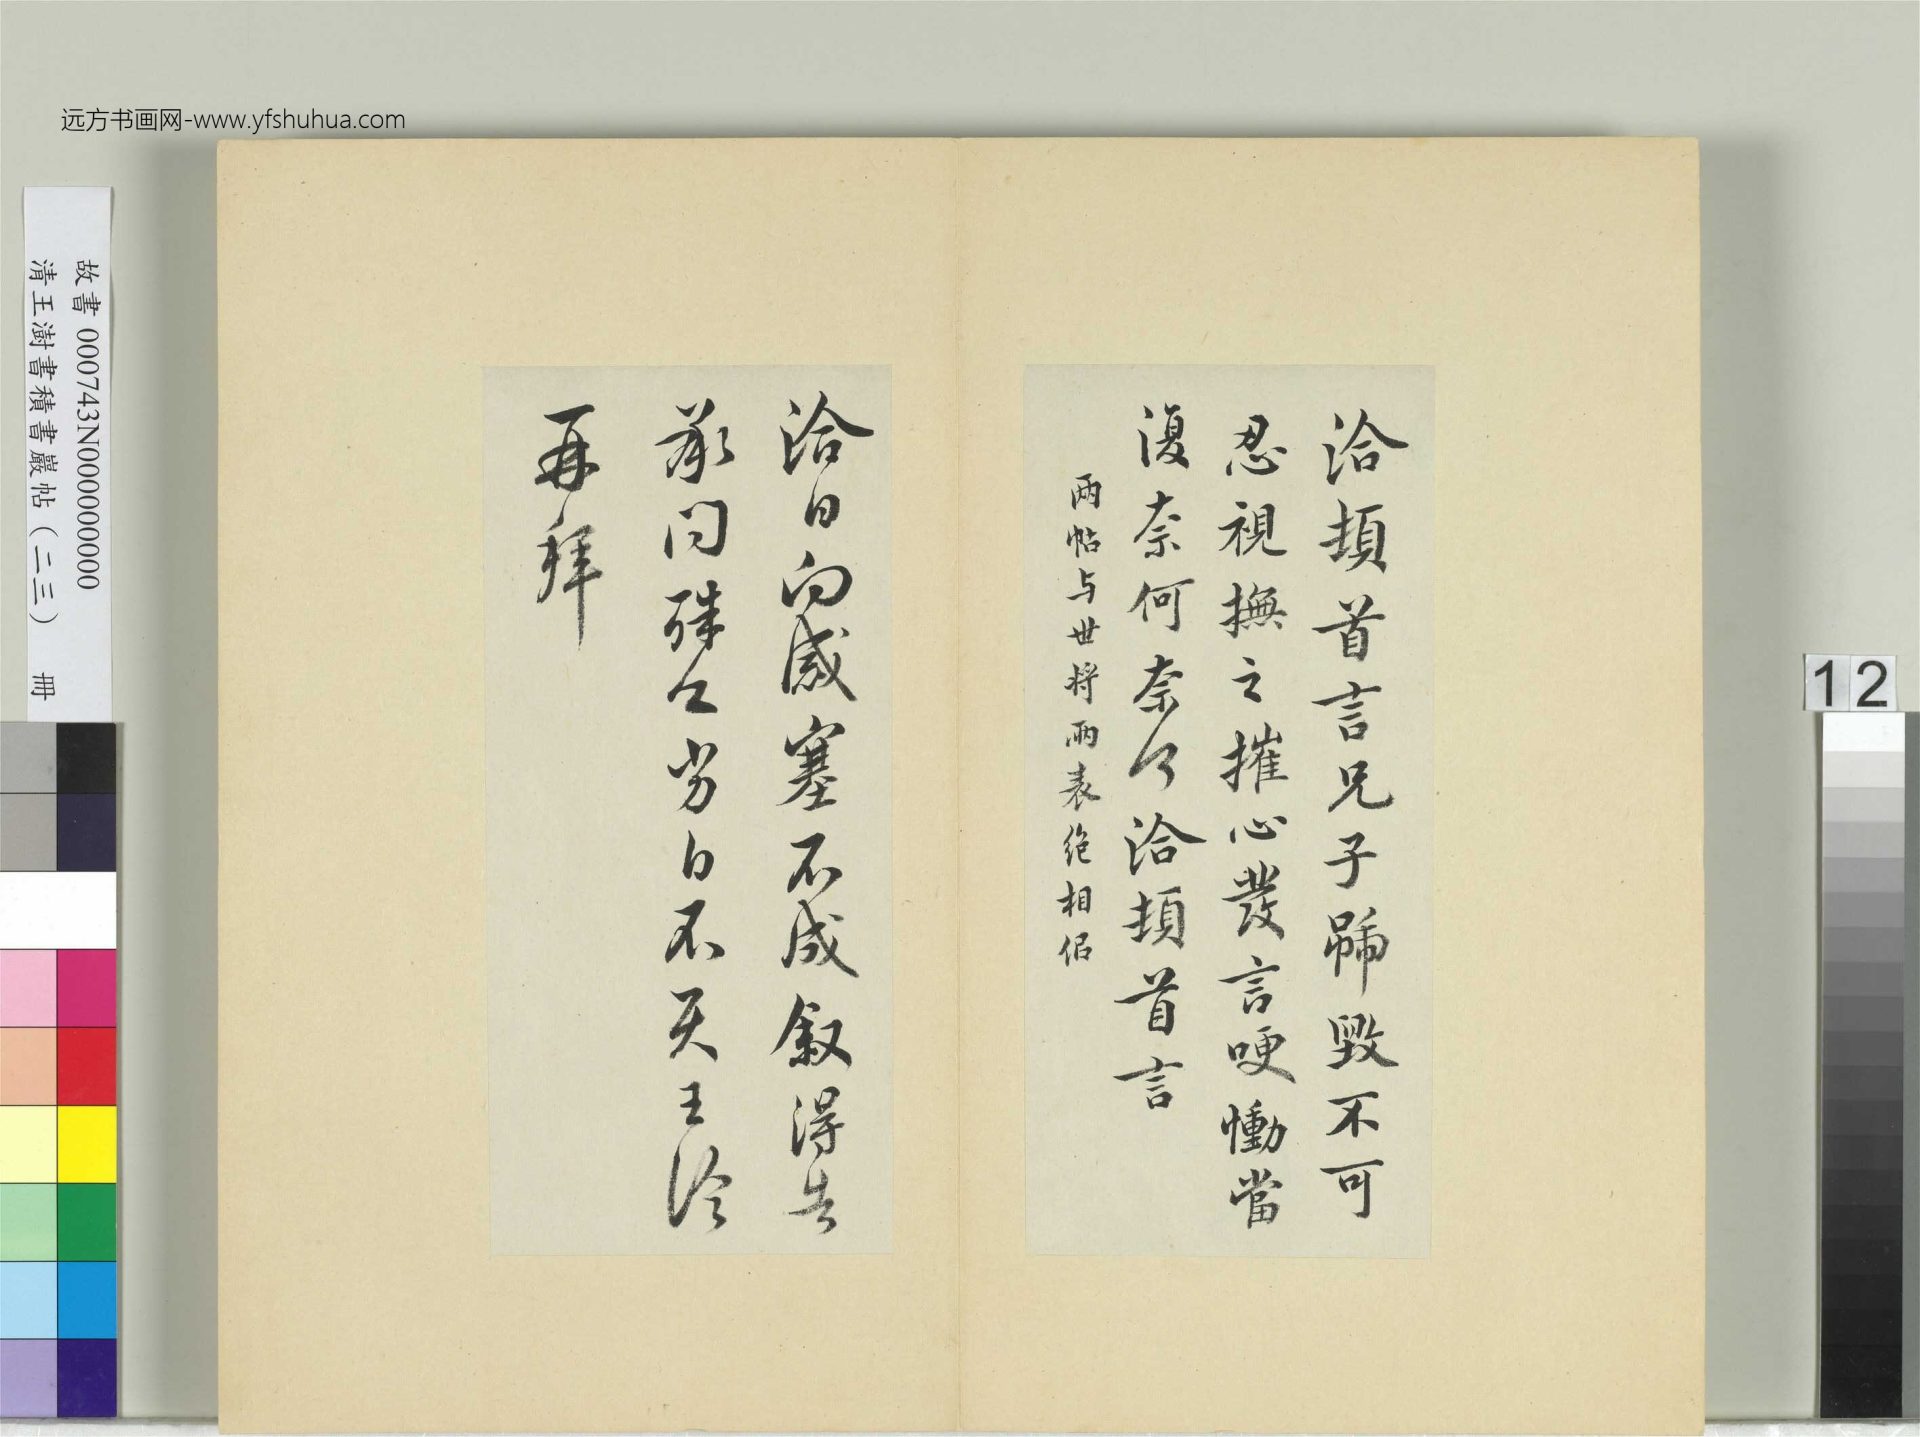 远方书画网-www.yfshuhua.com
故書 000743N000000000
清王澍書積書巖帖（二三） 冊
12
洽頓首言兄子號毀不可
忍視撫之摧心發言哽慟當
復奈何奈何洽頓首言
两帖与世将两表絶相侣
洽白向感塞不成叙得告
承問殊々劣白不具王洽
再拜